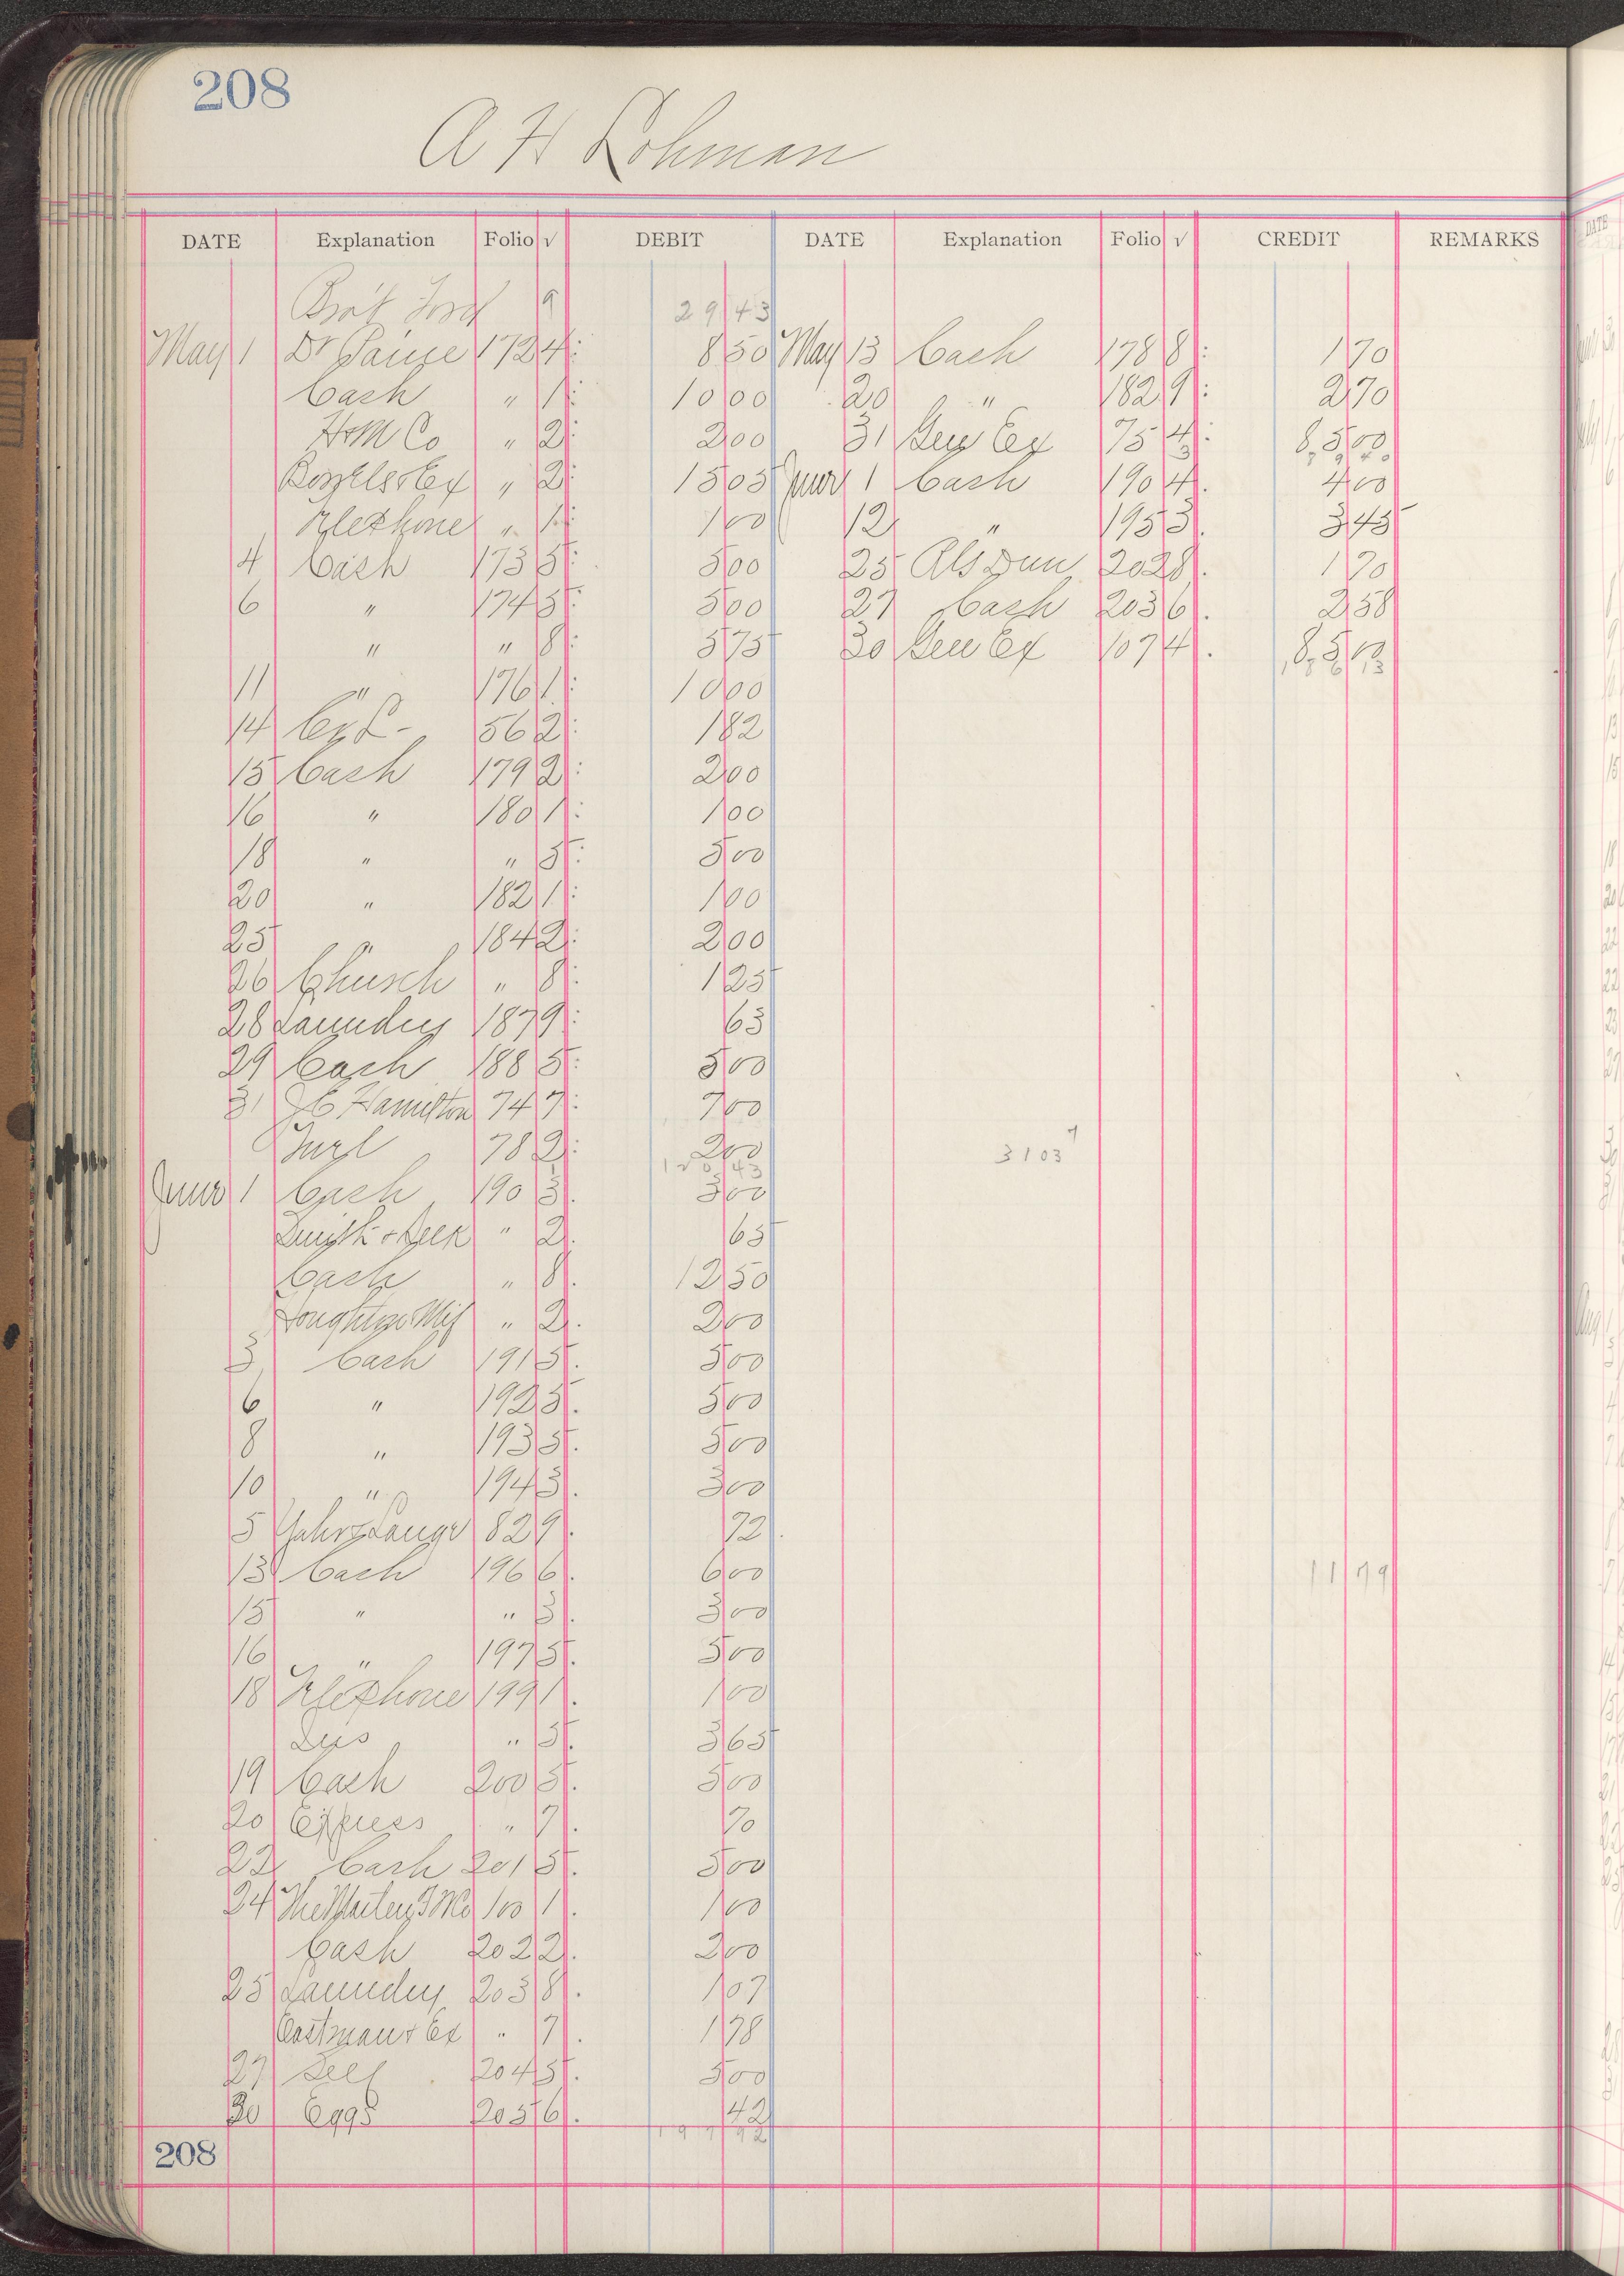 208
A H Lohman
DATE Explanation Folio √ DEBIT DATE Explanation Folio √ CREDIT REMARKS
Bro't Ford 9 29 43
May 1 Dr Paine 172 4 8 50 May 13 Cash 178 8 1 70
Cash " 1 10 00 20 " 182 9 2 70
H & M Co " 2 2 00 31 Gen Ex 75 4 8,5 00
" 2 15 05 June 1 Cash 190 4 4 00
Telephone " 1 1 00 12 " 195 3 3 45
4 Cash 173 5 5 00 25 202 8 1 70
6 " 174 5 5 00 27 Cash 203 6 2 58
" " 8 5 75 30 Gen Ex 107 4 8,5 00
11 " 176 1 10 00
14 56 2 1 82
15 Cash 179 2 2 00
16 " 180 1 1 00
18 " " 5 5 00
20 " 182 1 1 00
25 " 184 2 2 00
26 Church " 8 1 25
28 Laundry 187 9 63
29 Cash 188 5 5 00
31 J C Hamilton 74 7 7 00
78 2 2 00
3103
June 1 Cash 190 3 3 00
" 2 65
Cash " 8 12 50
Houghton Mif " 2 2 00
3 Cash 191 5 5 00
6 " 192 5 5 00
8 " 193 5 5 00
10 " 194 3 3 00
5 Yahr & Lange 82 9 72
13 Cash 196 6 6 00 11 79
15 " " 3 3 00
16 " 197 5 5 00
18 Telephone 199 1 1 00
" 5 3 65
19 Cash 200 5 5 00
20 Express " 7 70
22 Cash 201 5 5 00
24 100 1 1 00
Cash 202 2 2 00
25 Laundry 203 8 1 07
Eastman & Ex " 7 1 78
27 Self 204 5 5 00
30 Eggs 205 6 42
197 92
208